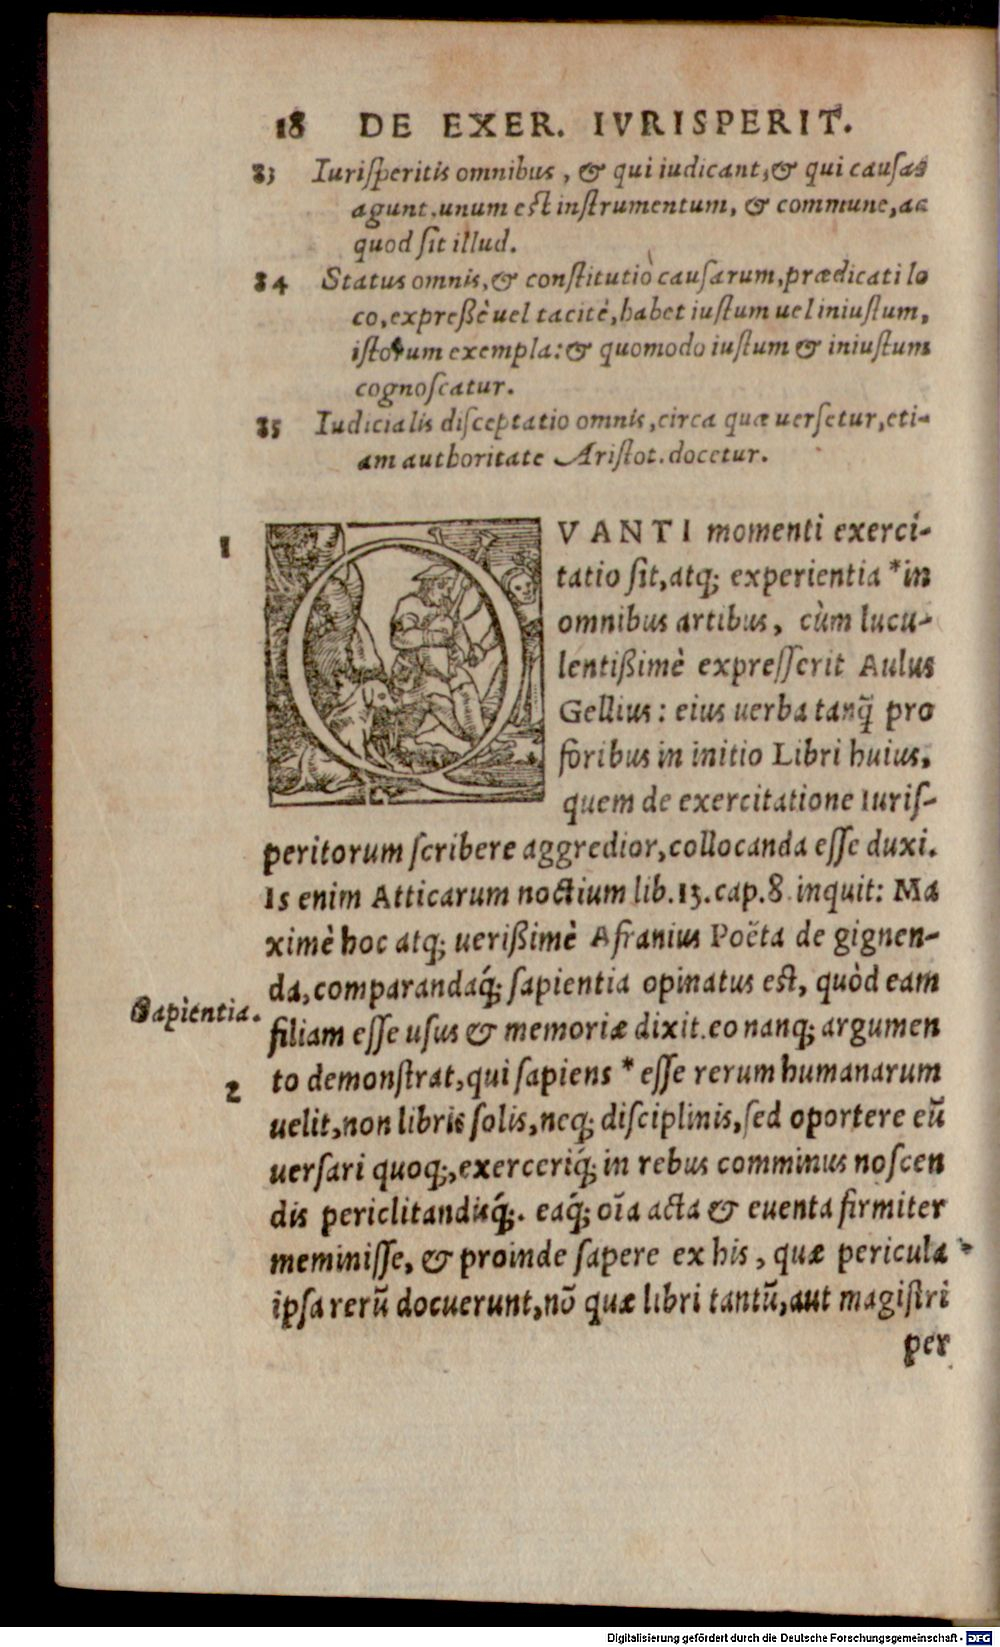 18 DE EXER. IVRISPERIT.
83 Iurisperitis omnibus, & qui iudicant, & qui causas
agunt, unum est instrumentum, & commune, ac
quod sit illud.
84 Status omnis, & constitutio causarum, prædicati lo
co, expreßè uel tacitè, habet iustum uel iniustum,
istorum exempla: & quomodo iustum & iniustum
cognoscatur.
85 Iudicialis disceptatio omnis, circa quæ uersetur, eti-
am authoritate Aristot. docetur.
1 QVANTI momenti exerci-
tatio sit, atq; experientia *in
omnibus artibus, cùm lucu-
lentißimè expresserit Aulus
Gellius: eius uerba tanq̃ pro
foribus in initio Libri huius,
quem de exercitatione Iuris-
peritorum scribere aggredior, collocanda esse duxi.
Is enim Atticarum noctium lib. 13. cap. 8. inquit: Ma
ximè hoc atq; uerißimè Afranius Poëta de gignen-
da, comparandaq́; sapientia opinatus est, quòd eam
Sapientia. filiam esse usus & memoriæ dixit. eo nanq; argumen
2 to demonstrat, qui sapiens * esse rerum humanarum
uelit, non libris solis, neq; disciplinis, sed oportere eũ
uersari quoq;, exerceriq́; in rebus comminus noscen
dis periclitandisq́;. eaq́; oĩa acta & euenta firmiter
meminisse, & proinde sapere ex his, quæ pericula
ipsa rerũ docuerunt, nõ quæ libri tantũ, aut magistri
per
Digitalisierung gefördert durch die Deutsche Forschungsgemeinschaft - DFG